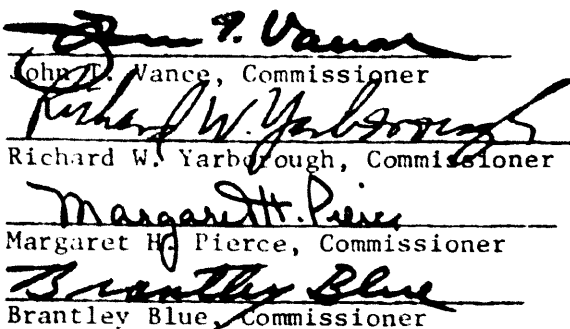 John T. Vance
John T. Vance, Commissioner
Richard W. Yarborough
Richard W. Yarborough, Commissioner
Margaret H. Pierce
Margaret H. Pierce, Commissioner
Brantley Blue
Brantley Blue, Commissioner